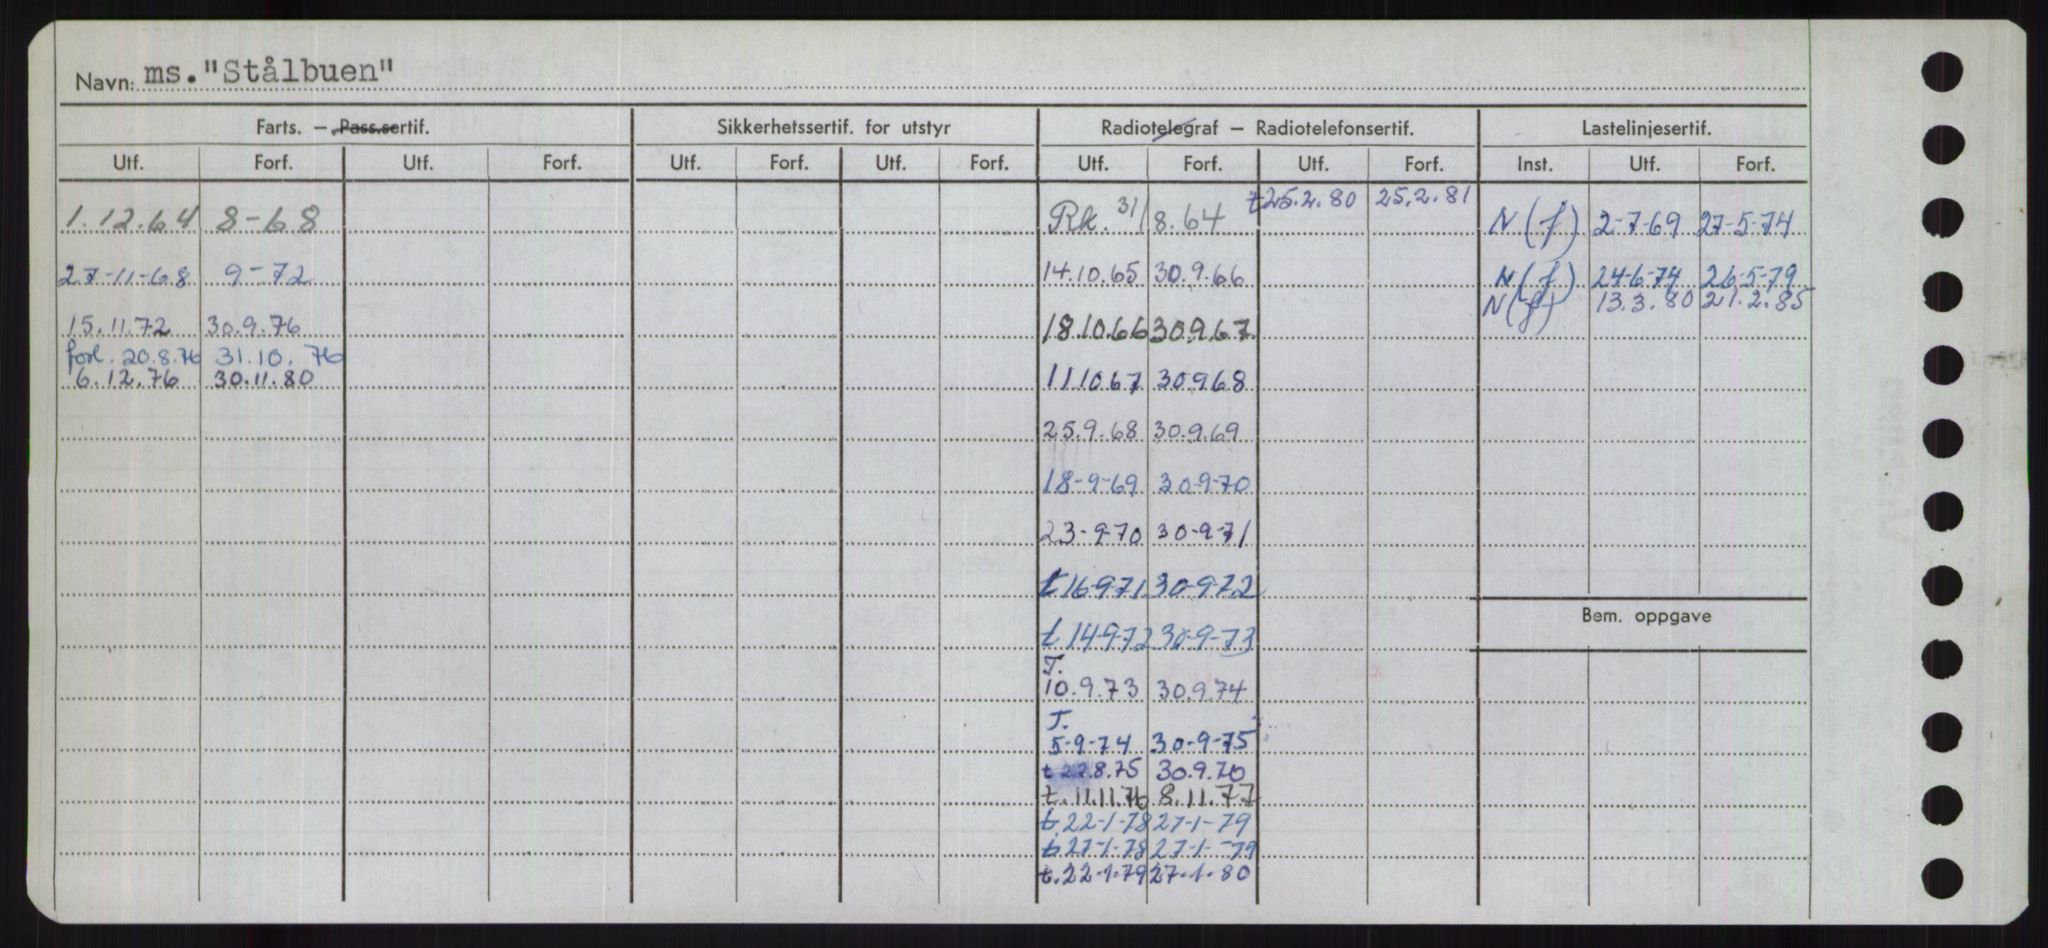 Navn: ms. "Stålbuen"
Farts. – Pass.sertif. Sikkerhetssertif. for utstyr Radiotelegraf – Radiotelefonsertif. Lastelinjesertif.
Utf. Forf. Utf. Forf. Utf. Forf. Utf. Forf. Utf. Forf. Utf. Forf. Inst. Utf. Forf.
t 25.2.80 25.2.81
1.12.64 8-68 Rk. 31/8.64 N(f) 2-7-69 27-5-74
27-11-68 9-72 14.10.65 30.9.66 N(f) 24-6-74 26-5-79
N(f) 13.3.80 21.2.85
15.11.72 30.9.76 18.10.66 30.9.67
forl. 20.8.76 31.10.76
6.12.76 30.11.80 11.10.67 30.9.68
25.9.68 30.9.69
18-9-69 30-9-70
23-9-70 30-9-71
t 16-9-71 30-9-72
Bem. oppgave
t 14-9-72 30-9-73
T.
10.9.73 30.9.74
T.
5-9-74 30-9-75
t 22.8.75 30.9.76
t. 11.11.76 8.11.77
t. 22-1-78 27-1-79
t. 27-1-78 27-1-79
t. 22-1-79 27-1-80